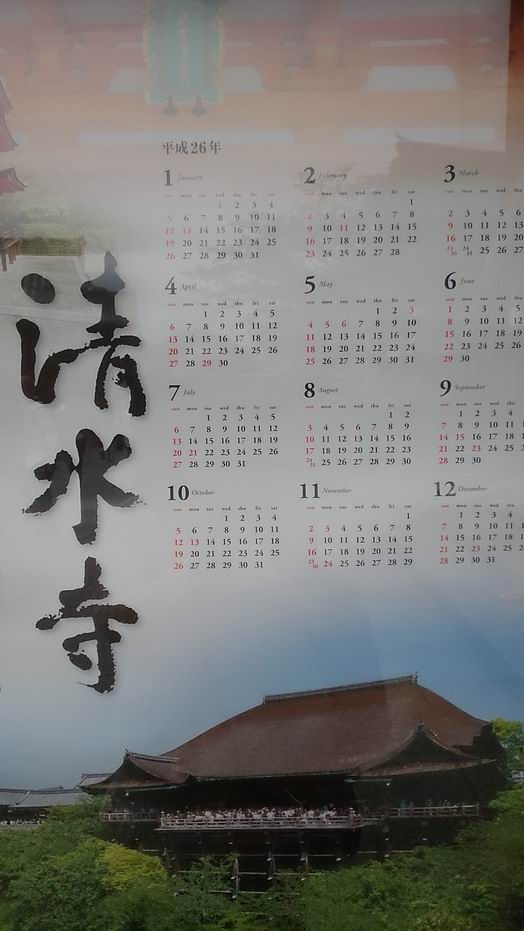 清水寺
平成26年
1 January
sun mon tue wed thu fri sat
1 2 3 4
5 6 7 8 9 10 11
12 13 14 15 16 17 18
19 20 21 22 23 24 25
26 27 28 29 30 31
2 February
sun mon tue wed thu fri sat
1
2 3 4 5 6 7 8
9 10 11 12 13 14 15
16 17 18 19 20 21 22
23 24 25 26 27 28
3 March
sun mon tue wed thu
2 3 4 5 6
9 10 11 12 13
16 17 18 19 20
23/30 24/31 25 26 27
4 April
sun mon tue wed thu fri sat
1 2 3 4 5
6 7 8 9 10 11 12
13 14 15 16 17 18 19
20 21 22 23 24 25 26
27 28 29 30
5 May
sun mon tue wed thu fri sat
1 2 3
4 5 6 7 8 9 10
11 12 13 14 15 16 17
18 19 20 21 22 23 24
25 26 27 28 29 30 31
6 June
sun mon tue wed thu
1 2 3 4 5
8 9 10 11 12
15 16 17 18 19
22 23 24 25 26
29 30
7 July
sun mon tue wed thu fri sat
1 2 3 4 5
6 7 8 9 10 11 12
13 14 15 16 17 18 19
20 21 22 23 24 25 26
27 28 29 30 31
8 August
sun mon tue wed thu fri sat
1 2
3 4 5 6 7 8 9
10 11 12 13 14 15 16
17 18 19 20 21 22 23
24/31 25 26 27 28 29 30
9 September
sun mon tue wed thu
1 2 3 4
7 8 9 10 11
14 15 16 17 18
21 22 23 24 25
28 29 30
10 October
sun mon tue wed thu fri sat
1 2 3 4
5 6 7 8 9 10 11
12 13 14 15 16 17 18
19 20 21 22 23 24 25
26 27 28 29 30 31
11 November
sun mon tue wed thu fri sat
1
2 3 4 5 6 7 8
9 10 11 12 13 14 15
16 17 18 19 20 21 22
23/30 24 25 26 27 28 29
12 December
sun mon tue wed thu
1 2 3 4
7 8 9 10 11
14 15 16 17 18
21 22 23 24 25
28 29 30 31